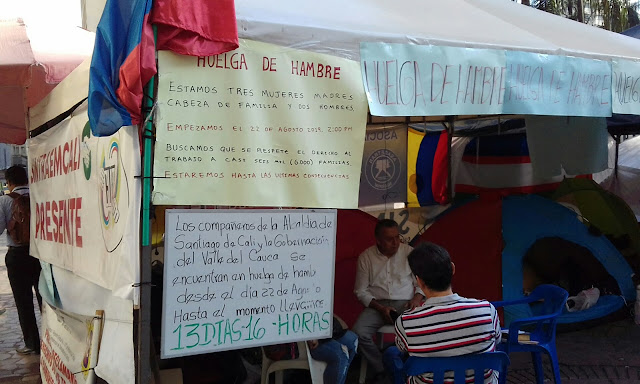 HUELGA DE HAMBRE
ESTAMOS TRES MUJERES MADRES
CABEZA DE FAMILIA Y DOS HOMBRES
EMPEZAMOS EL 22 DE AGOSTO 2018 2:00 PM
BUSCAMOS QUE SE RESPETE EL DERECHO AL
TRABAJO A CASI SEIS MIL (6000) FAMILIAS
ESTAREMOS HASTA LAS ULTIMAS CONSECUENCIAS
HUELGA DE HAMBRE
HUELGA DE HAMBRE
SINTRAEMCALI
PRESENTE
Los compañeros de la Alcaldia de
Santiago de Cali y la Gobernación
del Valle del Cauca se
encuentran en huelga de hambre
desde el día 22 de Agosto
Hasta el momento llevamos
13 DIAS 16 - HORAS